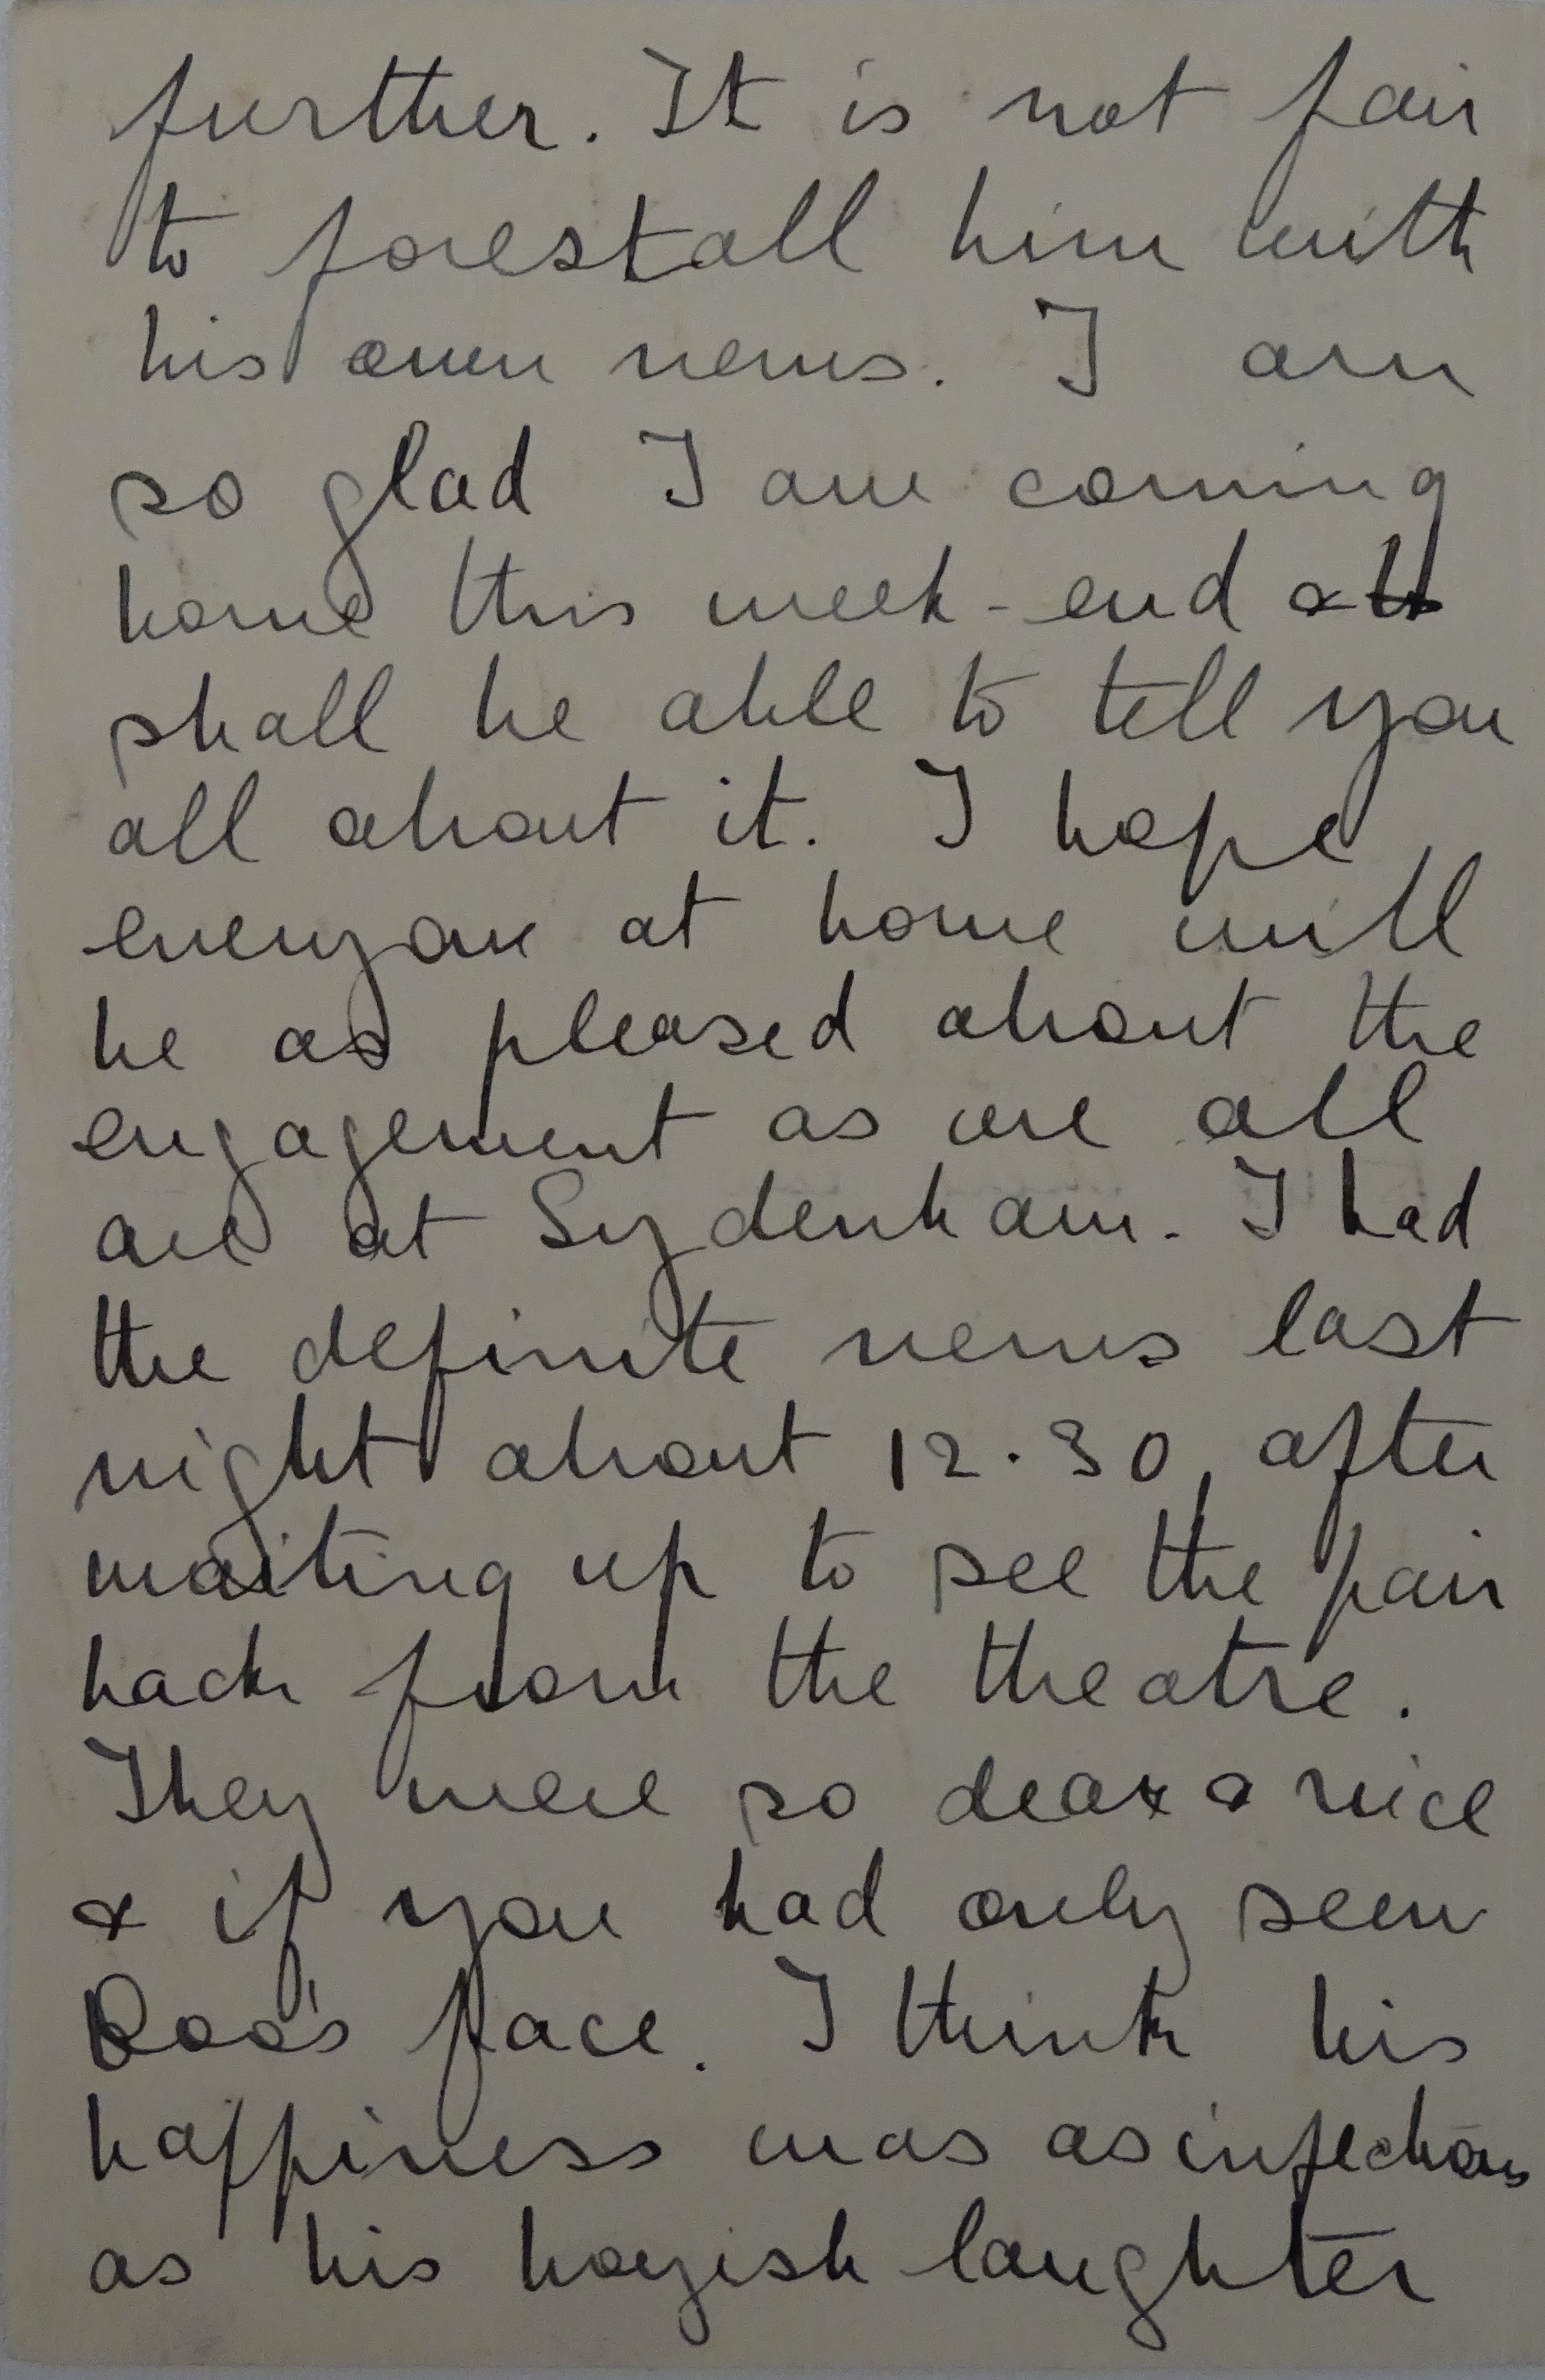 further. It is not fair
to forestall him with
his own news. I am
so glad I am coming
home this week-end &
shall be able to tell you
all about it. I hope
everyone at home will
be as pleased about the
engagement as we all
are at Sydenham. I had
the definite news last
night about 12.30, after
waiting up to see the pair
back from the theatre.
They were so dear & nice
& if you had only seen
face. I think his
happiness was as infectious
as his boyish laughter